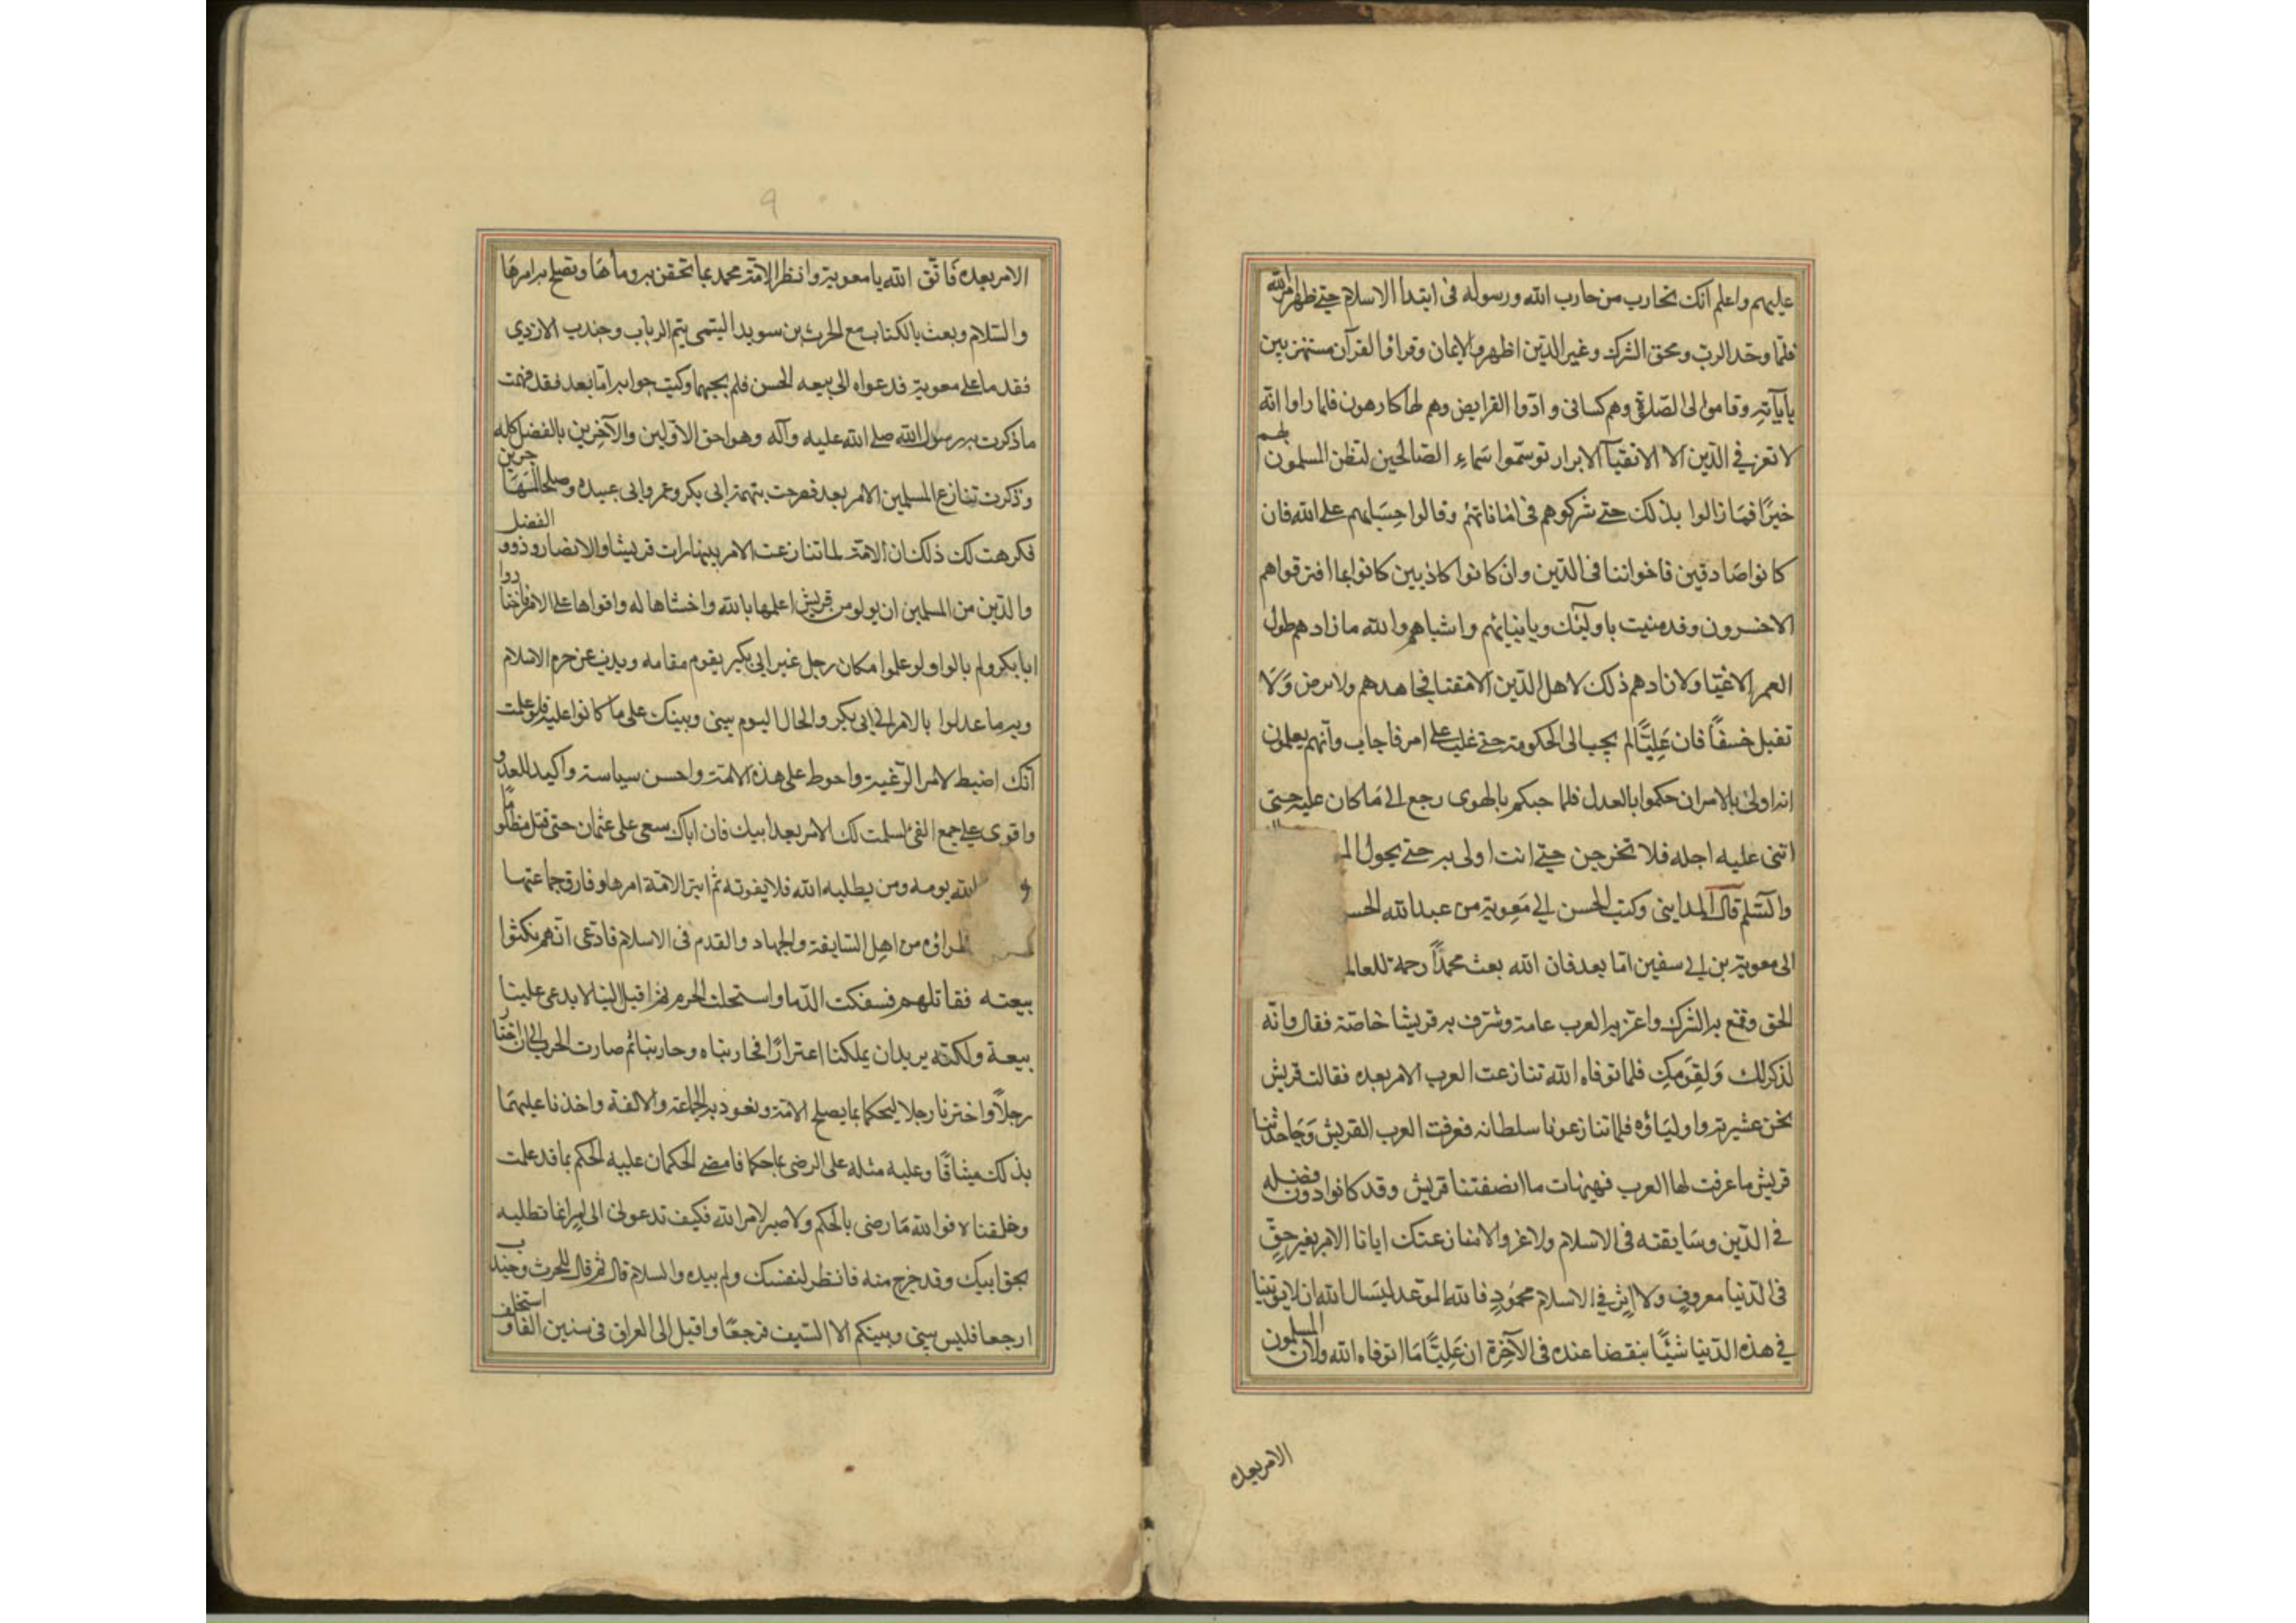 عليهم واعلم انك تحارب من حارب الله ورسوله فى ابتدا الاسلام حتى ظهر امر الله
فلمّا وحّد الربّ ومحق الشرك وعز الدّين اظهروا الايمان وقراؤا القرآن مستهزيين
بآياته وقاموا الى الصّلوة وهم كسالى وادّوا الفرايض وهم لها كارهون فلما راوا انّه
لا تعز فى الدّين الا الاتقيآ الابرار توسّموا سَماءِ الصّالحين لتظن المسلمون بهم
خيرًا فمَا زالوا بذلك حتى شركوهم فى اماناتهم وقالوا حِسَابهم على الله فان
كانوا صَادقين فاخواننا فى الدّين وان كانوا كاذبين كانوا بما افترقوا هم
الاخسرون وقد منيت باولئك وبابنيائهم واشباههم والله ما زادهم طول
العمر الا غيّا ولا زادهم ذلك لاهل الدّين الا مقتا فجاهدهم ولا ترض وَلَا
تقبل خسفًا فان عَلِيًّا لم يجب الى الحكومة حتى غلب على امر فاجاب وانّهم يعلمون
انه اولى بالامر ان حكموا بالعدل فلما حبكم بالهوى رجع الى مَا كان عليه حتى
اتى عليه اجله فلا تخرجن حتى انت اولى به حتى يحول الم
والسّلم قال المداينى وكتب الحسن الى مَعوية من عبد الله الحسـ
الى معوية بن ابى سفين امّا بعد فان الله بعث محمّدًا رحمة للعالمـ
الحق وقمع به الشرك واعز به العرب عامة وشرف به قريشا خاصّة فقال وانّه
لذكرلك وَلِقَومِكِ فلما توفاه الله تنازعت العرب الامر بعده فقالت قريش
نحن عشيرته واوليَاؤه فلا تنازعونا سلطانه فعرفت العرب القريش وَجَاحدتنا
قريش ما عرفت لها العرب فهيهات ما انصفتنا قريش وقد كانوا ذوى فضله
فى الدّين وسَابقته فى الاسلام ولا غرو الا منازعتك ايانا الامر بغير حقّ
فى الدّنيا معروفٍ وَلا اثر فى الاسلام محمُودٍ فالله الموعد ليَسال الله ان لا يؤتينا
فى هذه الدّنيا شيئًا ينقضنا عنده فى الآخِرة ان عَلِيًّا مَا توفاه الله ولان المسلمون
الامر بعده
٩
الامر بعده فَاتّق الله يا معوية وانظر لامّة محمد بما تحقن به دماءهَا وتصلح به امرهَا
والسّلام وبعث بالكتاب مع الحرث بن سويد اليتمى يتم الرباب وجندب الازدى
فقدما على معوية فدعواه الى بيعه الحسن فلم يجبهما وكتب جوابه امّا بعد فقد فهمت
ما ذكرت به رسول الله صلى الله عليه وآله وهو احق الاوّلين والآخِرين بالفضل كله
وذكرت تنازع المسلمين الامر بعد فصرحت بتهمة ابى بكر وعمر وابى عبيده وصلحا المهاجرين
فكرهت لك ذلك ان الامّة لما تنازعت الامر بينها رات قريشا والانصار وذوو الفضل
والدّين من المسلمين ان يولو من قريش اعلمها بالله واخشاها له واقواها على الامر فاختاروا
ابا بكر ولم يالوا ولو علموا مكان رجل غير ابى بكر يقوم مقامه ويذب عن حرم الاسلام
وبه ما عدلوا بالامر الى ابى بكر والحال اليوم بينى وبينك على ما كانوا عليه فلو علمت
انّك اضبط لامر الرّعية واحوط على هذه الامّة واحسن سياسة واكيد للعدو
واقوى على جمع الفئ لسلمت لك الامر بعد ابيك فان اباك سعى على عثمان حتى قتل مظلومًا
الله بومه ومن يطلبه الله فلا يفوته ثم ابتز الامّة امرها وفارق جماعتها
نظراؤه من اهل السّابقة والجهاد والقدم فى الاسلام فادّعى انّهم نكثوا
بيعته فقاتلهم فسفكت الدّما واستحلت الحرم ثم اقبل الينا لا يدعى علينا
بيعة ولكنّه يريد ان يملكنا اعترارًا فحاربناه وحاربنا ثم صارت الحرب الى ان اختار
رجلًا واخترنا رجلا ليحكما بما يصلح الامّة وتعود به الجماعة والالفة واخذنا عليهمَا
بذلك ميثاقًا وعليه مثله على الرضى بما حكما فامضى الحكمان عليه الحكم بما قد علمت
وخلعناه فوالله مَا رضى بالحكم ولا صبر لامر الله فكيف تدعونى الى امر انما تطلبه
بحق ابيك وقد خرج منه فانظر لنفسك ولم بيده والسلام قال ثم قال للحرث وجندب
ارجعا فليس بينى وبينكم الا السّيف فرجعَا واقبل الى العراق فى ستين الفا واستخلف